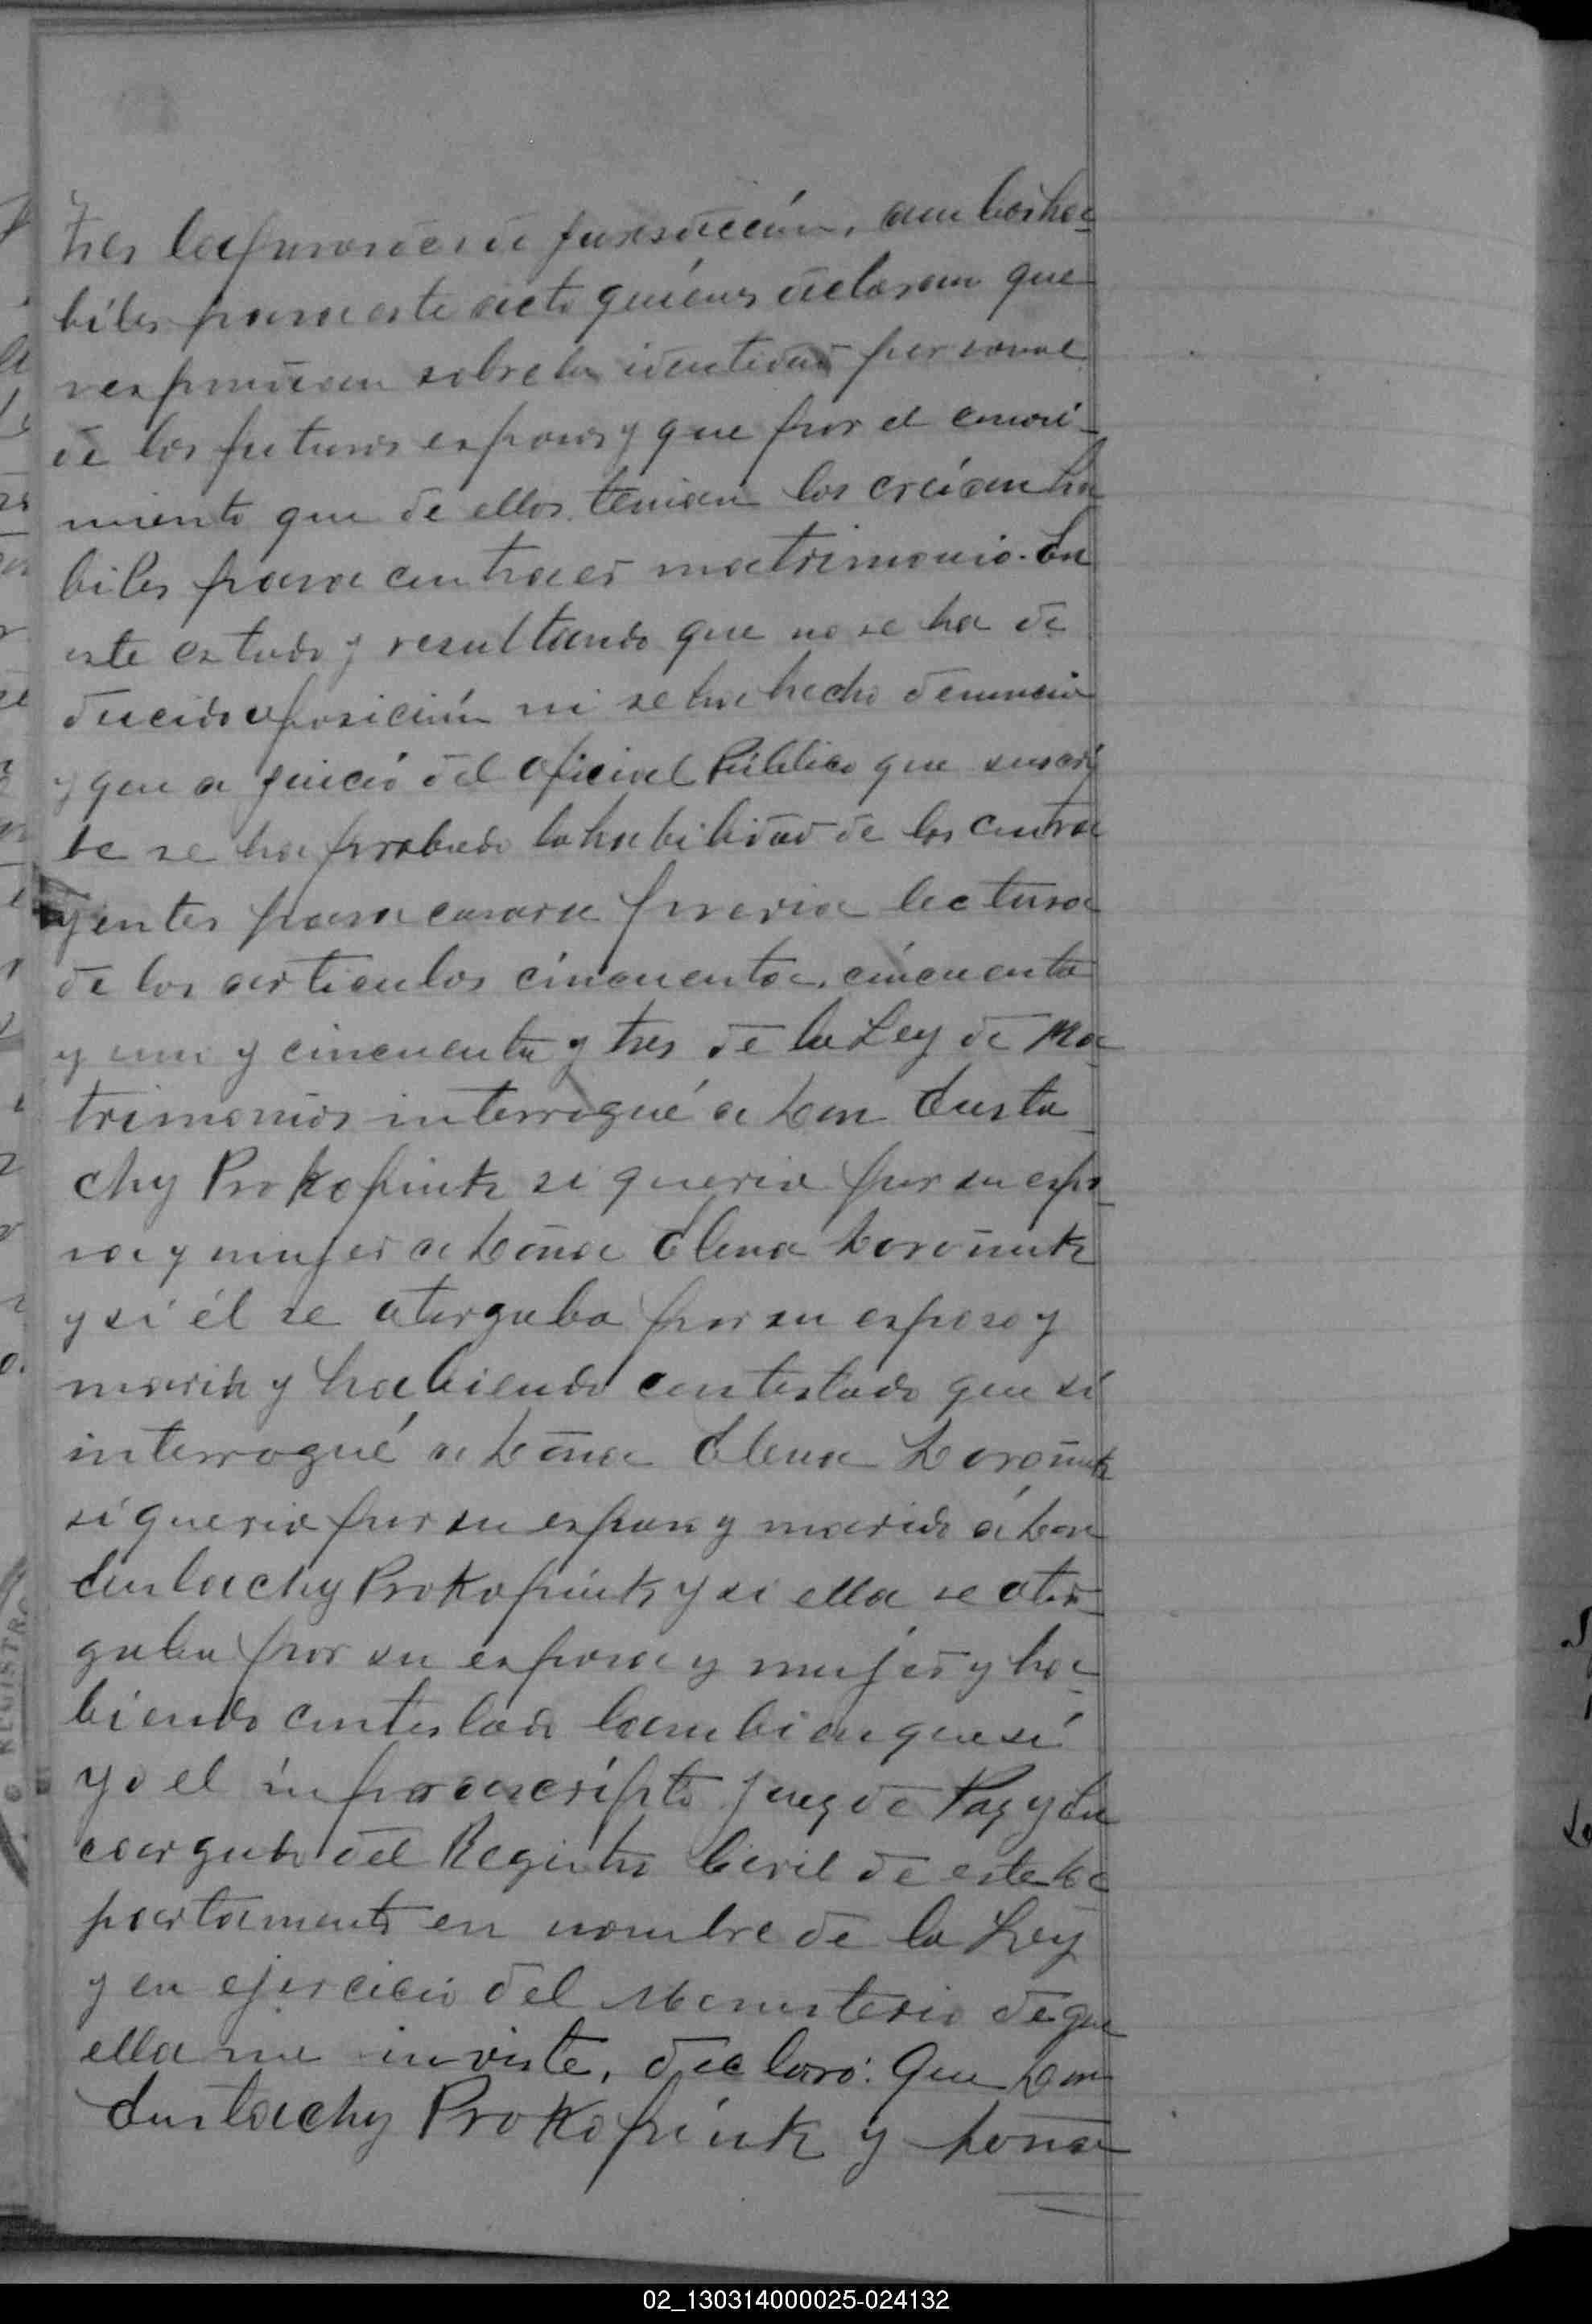 tres de jurisdicción, ambos há-
biles para este acto quienes declaran que
responden sobre la identidad personal
de los futuros esposos y que por el conoci-
miento que de ellos tenian los creían há
biles para contraer matrimonio. En
este estado y resultando que no se ha de
ducido oposición ni se ha hecho denuncia
y que a juicio del Oficial Público que suscri
be se ha probado la habilidad de los contra
yentes para casarse previa lectura
de los articulos cincuenta, cincuenta
y uno y cincuenta y tres de la Ley de Ma-
trimonios interrogué a Don Eusta-
chy Prokopiuk si queria por su espo-
sa y mujer a Doña Elena Doroñuk
y si él se otorgaba por su esposo y
marido y habiendo contestado que sí
interrogué a Doña Elena Doroñuk
si queria por su esposo y marido á Don
Eustachy Prokopiuk y si ella se otor-
gaba por su esposa y mujer y ha-
biendo contestado tambien que sí
yo el infrascripto Juez de Paz y En
cargado del Registro Civil de este De
partamento en nombre de la Ley
y en ejercicio del Menisterio de que
ella me inviste, declaro: Que Don
Eustachy Prokopiuk y Doña
02_130314000025-024132